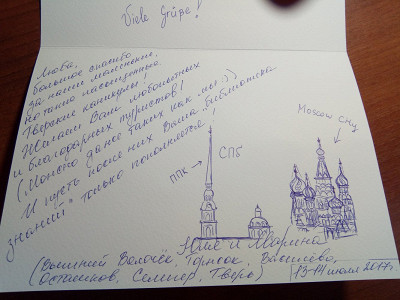 Viele Grüße!
Люба,
большое спасибо
за наши маленькие,
но такие насыщенные
Тверские каникулы!
Желаем Вам любопытных
и благодарных туристов!
(Можно даже таких как мы :))
И пусть после них Ваша "библиотека
знаний" только пополняется!
Moscow city
СПб
ППК
Юля и Марина
(Вышний Волочёк, Торжок, Василёво,
Осташков, Селигер, Тверь)
13-14 июля 2017г.